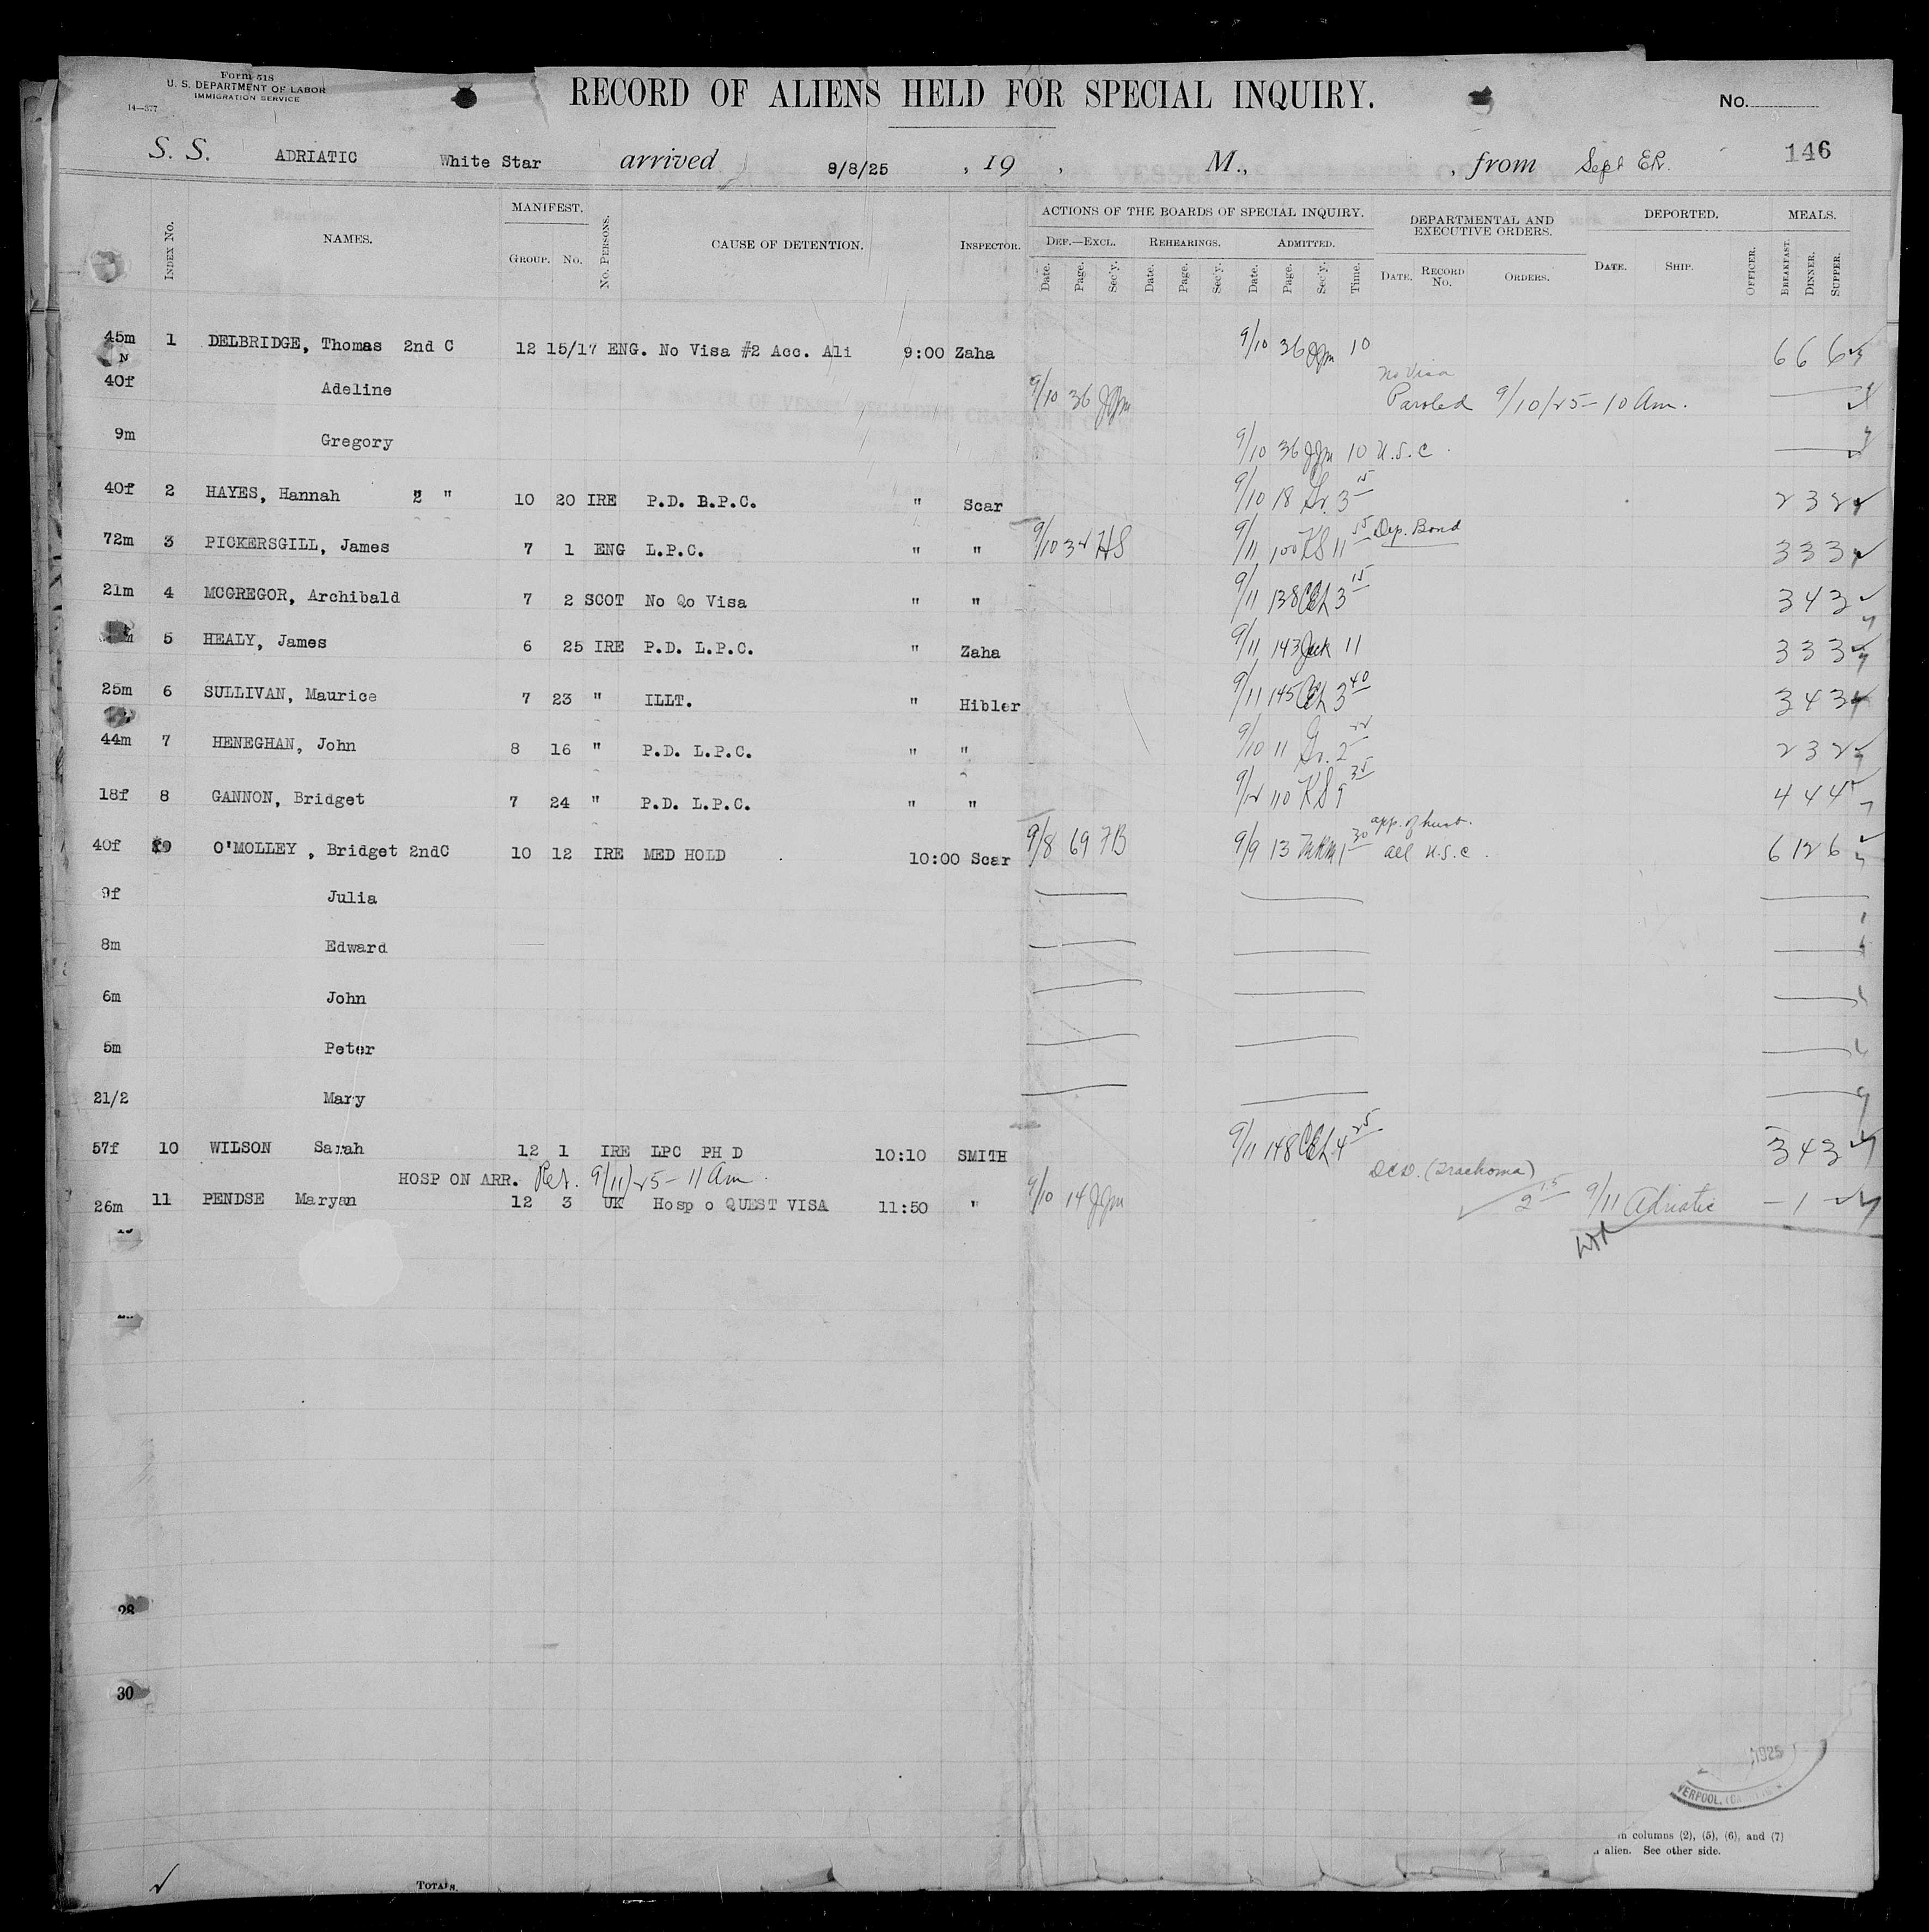 Form 518
U. S. DEPARTMENT OF LABOR
IMMIGRATION SERVICE
14—377
RECORD OF ALIENS HELD FOR SPECIAL INQUIRY.
No.
S. S. ADRIATIC White Star arrived 9/8/25 , 19 , M., , from Sept 146
INDEX No. NAMES. MANIFEST. GROUP. No. No. PERSONS. CAUSE OF DETENTION. INSPECTOR. ACTIONS OF THE BOARDS OF SPECIAL INQUIRY. DEF.—EXCL. Date. Page. Sec'y. REHEARINGS. Date. Page. Sec'y. ADMITTED. Date. Page. Sec'y. Time. DEPARTMENTAL AND EXECUTIVE ORDERS. DATE. RECORD No. ORDERS. DEPORTED. DATE. SHIP. OFFICER. MEALS. BREAKFAST. DINNER. SUPPER.
45m 1 DELBRIDGE, Thomas 2nd C 12 15/17 ENG. No Visa #2 Acc. Ali 9:00 Zaha 9/10 36 JJm 10 6 6 6
No Visa
40f Adeline 9/10 36 JJm Paroled 9/10/25 - 10 Am.
9m Gregory 9/10 36 JJm 10 U.S.C.
40f 2 HAYES, Hannah 2 " 10 20 IRE P.D. B.P.C. " Scar 9/10 18 3 15 2 3 2
72m 3 PICKERSGILL, James 7 1 ENG L.P.C. " " 9/10 34 HS 9/11 100 KS 11 15 Dep. Bond 3 3 3
21m 4 MCGREGOR, Archibald 7 2 SCOT No Qo Visa " " 9/11 138 CEL 3 15 3 4 3
5 HEALY, James 6 25 IRE P.D. L.P.C. " Zaha 9/11 143 11 3 3 3
25m 6 SULLIVAN, Maurice 7 23 " ILLT. " Hibler 9/11 145 CEL 3 40 3 4 3
44m 7 HENEGHAN, John 8 16 " P.D. L.P.C. " " 9/10 11 2 2 3 2
18f 8 GANNON, Bridget 7 24 " P.D. L.P.C. " " 9/12 110 KS 9 35 4 4 4
app. of husb.
40f 9 O'MOLLEY , Bridget 2ndC 10 12 IRE MED HOLD 10:00 Scar 9/8 69 FB 9/9 13 1 30 all U.S.C. 6 12 6
9f Julia
8m Edward
6m John
5m Peter
21/2 Mary
57f 10 WILSON Sarah 12 1 IRE LPC PH D 10:10 SMITH 9/11 148 CEL 4 25 3 4 3
HOSP ON ARR. Ret. 9/11/25 - 11 Am. DCD. (Trachoma)
26m 11 PENDSE Maryan 12 3 UK Hosp o QUEST VISA 11:50 " 9/10 14 JJm 2 15 9/11 Adriatic — 1 —
28
30
1925
VERPOOL,
n columns (2), (5), (6), and (7)
alien. See other side.
TOTALS.